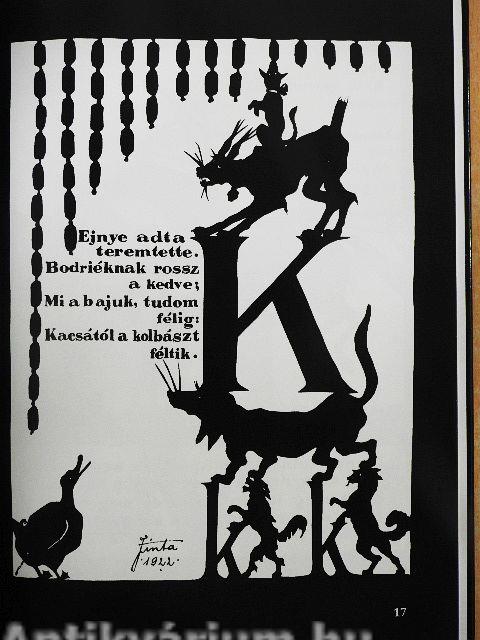 Ejnye adta
teremtette.
Bodriéknak rossz
a kedve;
Mi a bajuk, tudom
félig:
Kacsától a kolbászt
féltik.
K
k k
Jinta
.1922.
17
Antikvárium.hu